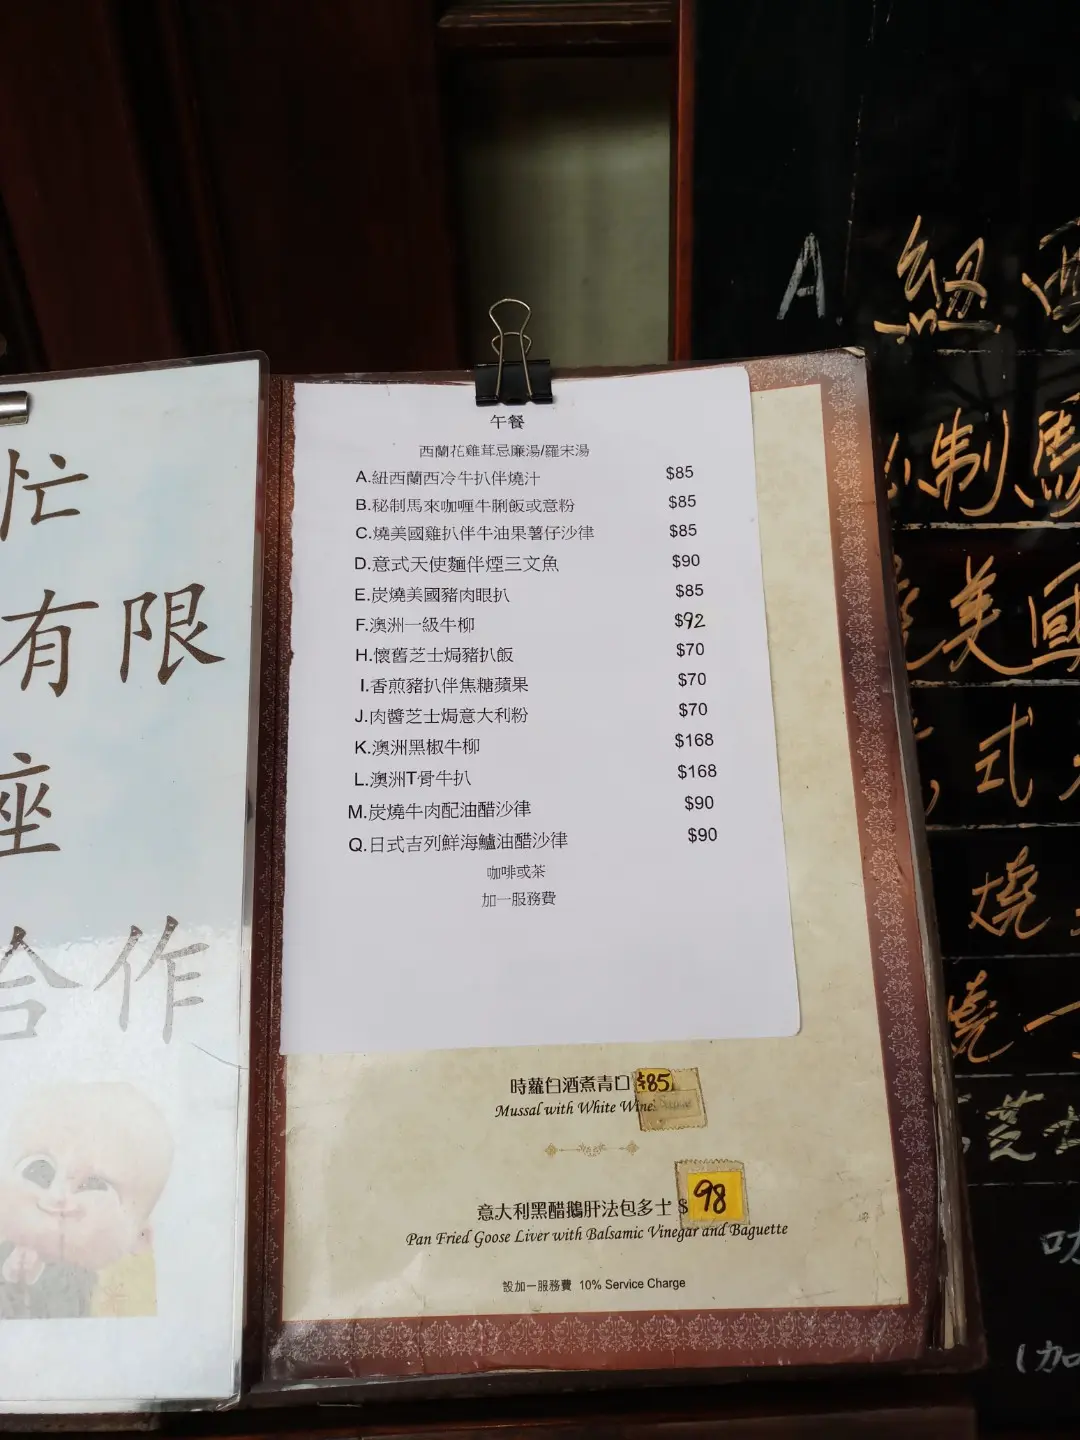 忙
有限
座
合作
午餐
西蘭花雞茸忌廉湯/羅宋湯
A.紐西蘭西冷牛扒伴燒汁 $85
B.秘制馬來咖喱牛脷飯或意粉 $85
C.燒美國雞扒伴牛油果薯仔沙律 $85
D.意式天使麵伴煙三文魚 $90
E.炭燒美國豬肉眼扒 $85
F.澳洲一級牛柳 $92
H.懷舊芝士焗豬扒飯 $70
I.香煎豬扒伴焦糖蘋果 $70
J.肉醬芝士焗意大利粉 $70
K.澳洲黑椒牛柳 $168
L.澳洲T骨牛扒 $168
M.炭燒牛肉配油醋沙律 $90
Q.日式吉列鮮海鱸油醋沙律 $90
咖啡或茶
加一服務費
時蘿白酒煮青口 $85
Mussal with White Wine
意大利黑醋鵝肝法包多士 $98
Pan Fried Goose Liver with Balsamic Vinegar and Baguette
設加一服務費 10% Service Charge
A 紐
制馬
美國
式
燒
燒一
芝
咖
(加